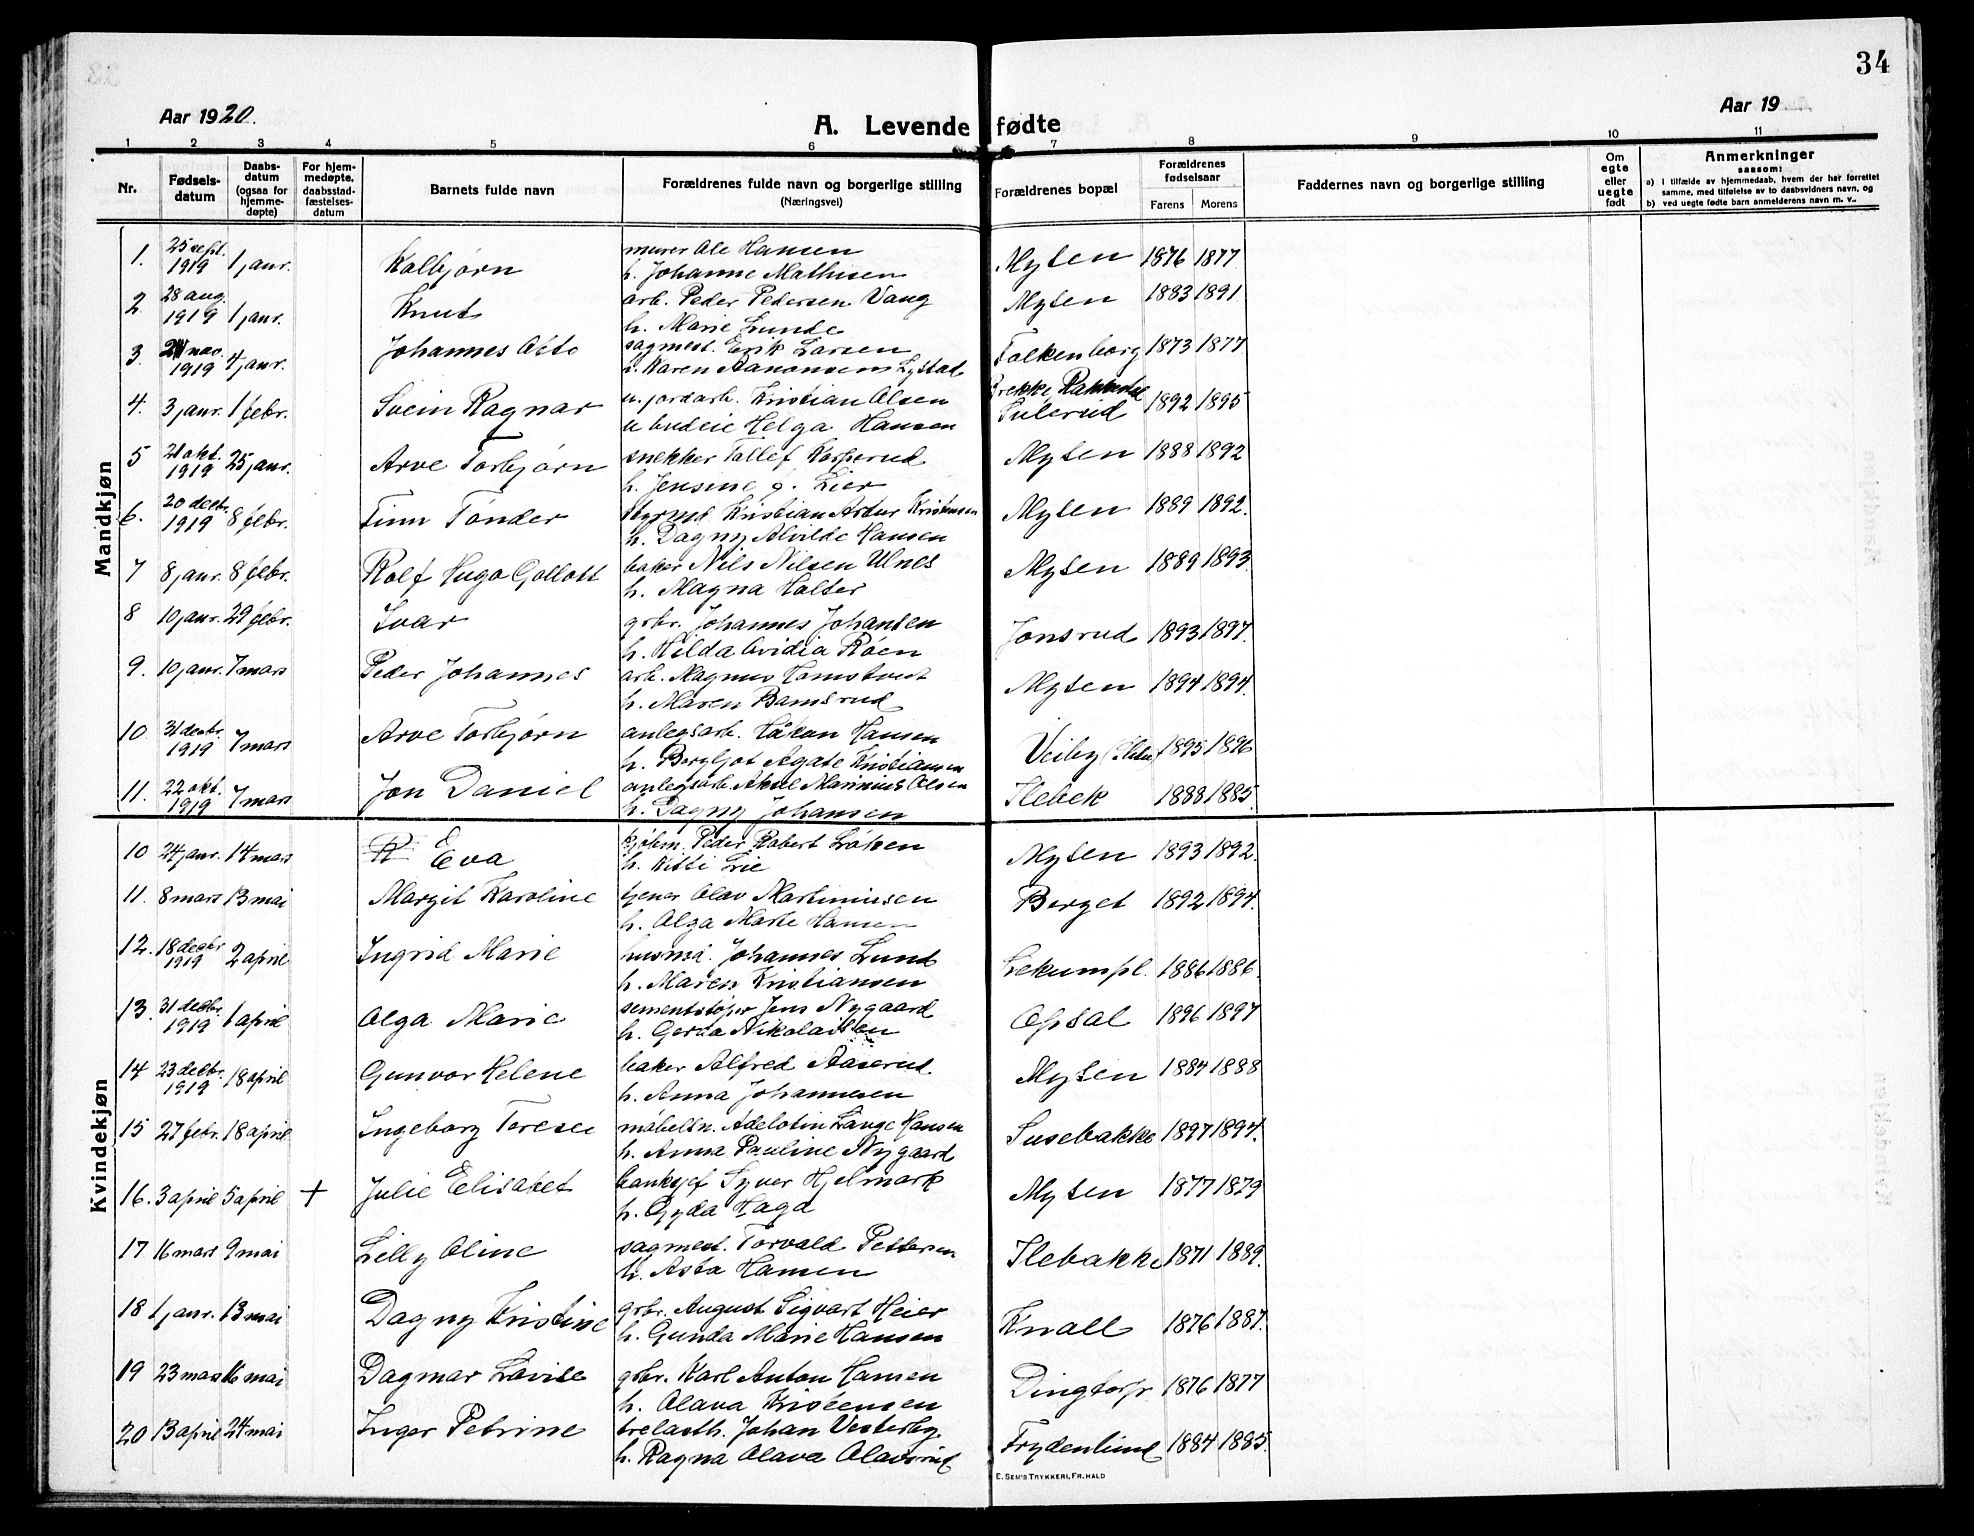 34
Aar 1920.
Aar 19
A. Levende fødte
1 2 3 4 5 6 7 8 9 10 11
Nr.
Fødsels-datum
Daabs-datum (ogsaa for hjemme-døpte)
For hjem-medøpte, daabsstad-fæstelses-datum
Barnets fulde navn
Forældrenes fulde navn og borgerlige stilling (Næringsvei)
Forældrenes bopæl
Forældrenes fødselsaar
Farens Morens
Faddernes navn og borgerlige stilling
Om egte eller uegte født
Anmerkninger saasom:
a) i tilfælde av hjemmedaab, hvem der har forrettet samme, med tilføielse av to daabsvidners navn, og
b) ved uegte fødte barn anmelderens navn m. v..
Mandkjøn
1. 25 sept. 1919 1 janr. Kolbjørn murer Ole Hansen Mysen 1876 1877
h. Johanne Mathisen
2. 28 aug. 1919 1 janr. Knut arb. Peder Pedersen Vang Mysen 1883 1891
h. Marie Lunde
3. nov. 1919 4 janr. Johannes Otto sagmest. Erik Larsen Falkenborg 1873 1877
Karen Aanonsen Lystad
4. 3 janr. 1 febr. Svein Ragnar u. jordarb. Kristian Olsen Brekke Rakkestad 1892 1895
u budeie Helga Hansen Sulerud
5 21 okt. 1919 25 janr. Arve Torbjørn snekker Tollef Kasperud Mysen 1888 1892
h. Jensine g. Lier
6. 20 decbr. 1919 8 febr. Finn Tønder Kristian Artur Kristensen Mysen 1889 1892.
h. Dagny Alvilde Hansen
7 8 janr. 8 febr. Rolf Hugo Gollott baker Nils Nilsen Ulnes Mysen 1889 1893.
h. Magna Holter
8 10 janr. 29 febr. Ivar grbr. Johannes Johansen Jonsrud 1893 1897.
h. Hilda Ovidia Roen
9. 10 janr. 7 mars Peder Johannes arb. Magnus Homstvedt Mysen 1894 1894.
h. Maren Bamsrud
10 31 decbr. 1919 7 mars Arve Torbjørn anlegsarb. Håkon Hansen Veiby 1895 1896
h. Bergljot Agate Kristiansen
11. 22 okt. 1919 7 mars Jon Daniel anlegsarb. Aksel Marinius Olsen Ilebek 1888 1885.
h. Dagny Johansen
Kvindekjøn
10 24 janr. 14 mars R Eva kjøbm. Peder Robert Løken Mysen 1893 1892.
h. Kitti Lie
11. 8 mars 13 mai Margit Karoline tjener Olav Martiniusen Berget 1892 1894.
h. Olga Marie Hansen
12. 18 decbr 1919 2 april Ingrid Marie husmd. Johannes Lund Lekumpl. 1886 1886.
h. Maren Kristiansen
13. 31 decbr. 1919 1 april Olga Marie sementstøper Jens Nygaard Opsal 1896 1897
h. Gerda Nikolaisen
14 23 decbr. 1919 18 april Gunvor Helene baker Alfred Aaserud. Mysen 1884 1888
h. Anna Johannesen
15 27 febr. 18 april Ingeborg Terese møbelh. Adelstin Lange Hansen Susebakke 1897 1894.
h. Anna Pauline Nygaard
16. 3 april 5 april + Julie Elisabet banksjef Syver Hjelmark Mysen 1877 1879
h. Gyda Hagd
17 16 mars 9 mai Lilly Oline sagmest. Torvald Pettersen Ilebakke 1871 1889.
h. Asta Hansen
18 1 janr. 13 mai Dagny Kristine grbr. August Sigvart Heier Knall 1876 1887.
h. Gunda Marie Hansen
19 23 mars 16 mai Dagmar Lovise grbr. Karl Anton Hansen Dingtorp 1876 1877
h. Olava Kristensen
20 13 april 24 mai Inger Petrine trelasth. Johan Vesterby Frydenlund 1884 1885.
h. Ragna Olava Olavsrud
E. Sem's Trykkeri, Fr.hald